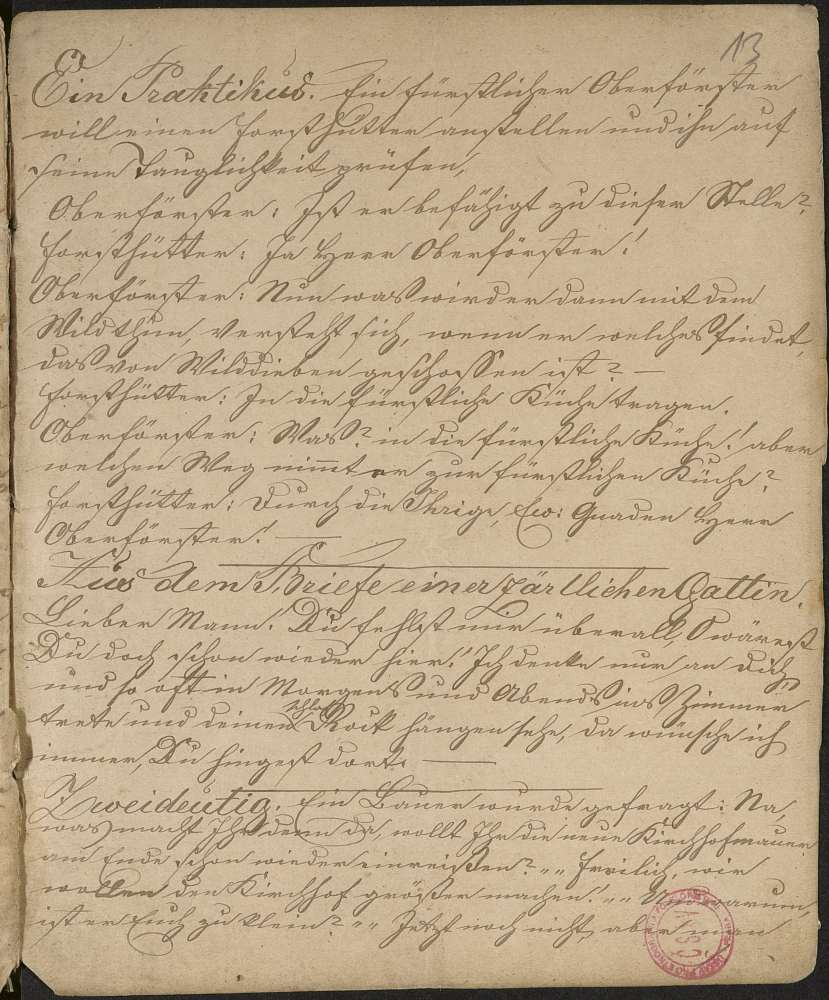 13
Ein Praktikus. Ein fürstlicher Oberförster
will einen Forsthütter anstellen und ihn auf
seine Tauglichkeit prüfen,
Oberförster: Ist er befähigt zu dieser Stelle?
Forsthütter: Ja Herr Oberförster!
Oberförster: Nun was wird er dann mit dem
Wild thun, versteht sich, wenn er welches findet,
das von Wilddieben geschossen ist? —
Forsthütter: In die fürstliche Küche tragen.
Oberförster: Was? in die fürstliche Küche! aber
welchen Weg nimmt er zur fürstlichen Küche?
Forsthütter: Durch die Ihrige, Ew: Gnaden Herr
Oberförster! —
Aus dem Briefe einer zärtlichen Gattin.
Lieber Mann! Du fehlst mir überall, O wärest
Du doch schon wieder hier! Ich denke nur an Dich
und so oft in Morgens und Abends ins Zimmer
trete und deinen Schlaf Rock hängen sehe, da wünsche ich
immer, Du hingest dort. —
Zweideutig. Ein Bauer wurde gefragt: Na,
was macht Ihr denn da, wollt Ihr die neue Kirchhofmauer
am Ende schon wieder einreißen? „„ Freilich, wir
wollen den Kirchhof größer machen! „„ warum,
ist er Euch zu klein? „„ Jetzt noch nicht, aber man